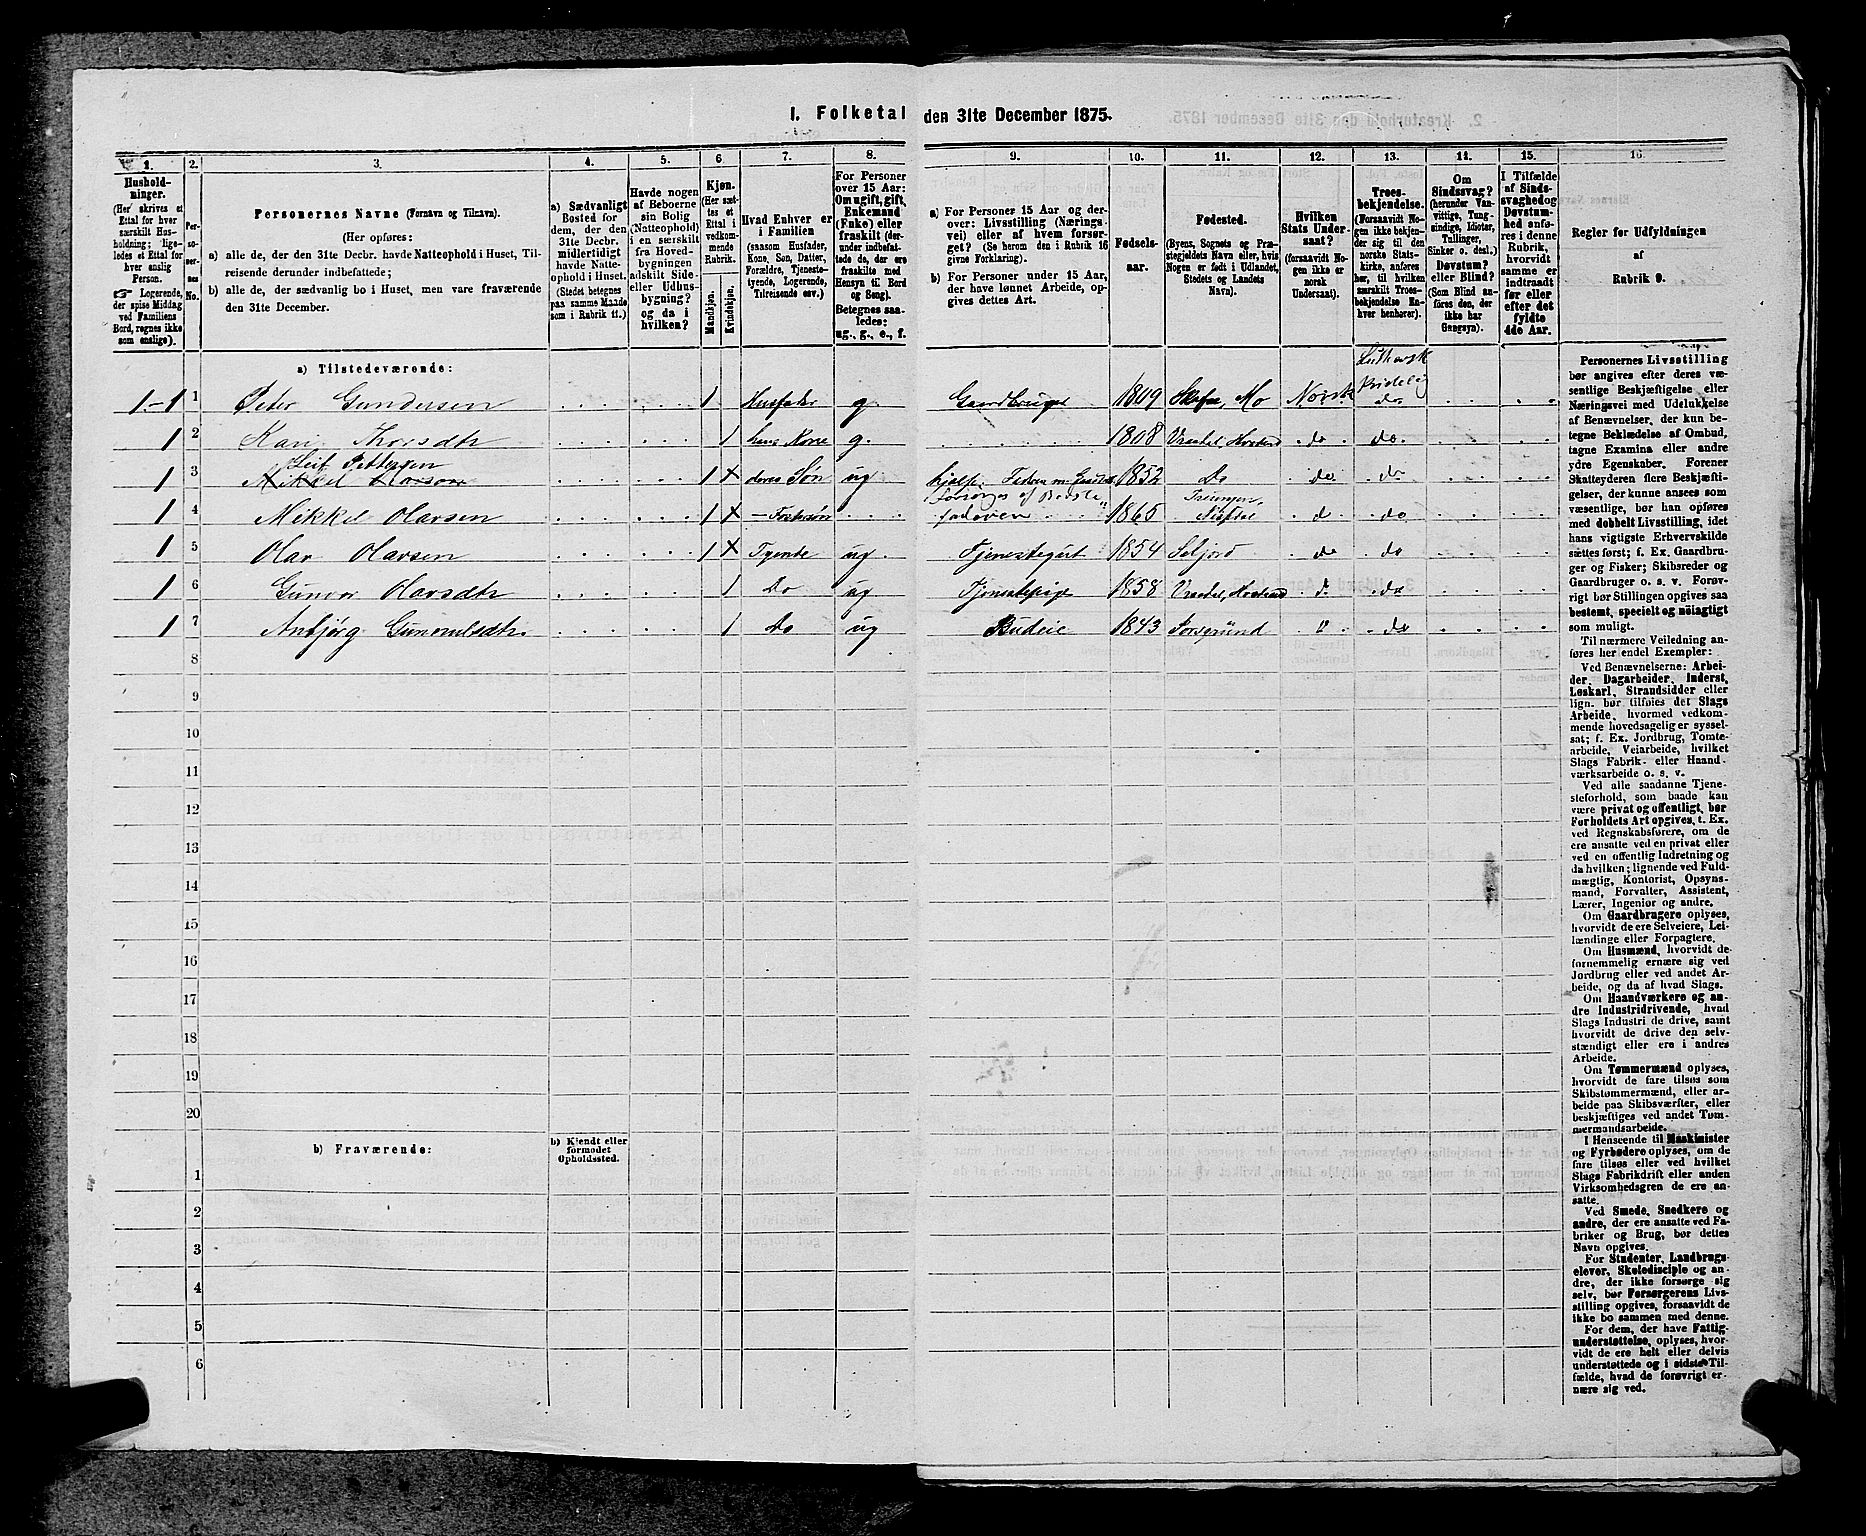 I. Folketal den 31te December 1875.
1. 2. 3. 4. 5. 6. 7. 8. 9. 10. 11. 12. 13. 14. 15. 16.
Hushold-
ninger.
(Her skrives et
Ettal for hver
særskilt Hus-
holdning; lige-
ledes et Ettal for
hver enslig
Person.
☞ Logerende,
der spise Middag
ved Familiens
Bord, regnes ikke
som enslige).
Per-
so-
ner-
nes
No.
Personernes Navne (Fornavn og Tilnavn).
(Her opføres:
a) alle de, der den 31te Decbr. havde Natteophold i Huset, Til-
reisende derunder indbefattede;
b) alle de, der sædvanlig bo i Huset, men vare fraværende
den 31te December.
a) Sædvanligt
Bosted for
dem, der den
31te Decbr.
midlertidigt
havde Natte-
ophold i Huset.
(Stedet betegnes
paa samme Maade
som i Rubrik 11.)
Havde nogen
af Beboerne
sin Bolig
(Natteophold)
i en særskilt
fra Hoved-
bygningen
adskilt Side-
eller Udhus-
bygning?
og da i
hvilken?
Kjøn.
(Her sæt-
tes et
Ettal i
vedkom-
mende
Rubrik.
Mandkjøn.
Kvindekjøn.
Hvad Enhver er
i Familien
(saasom Husfader,
Kone, Søn, Datter,
Forældre, Tjeneste-
tyende, Logerende,
Tilreisende osv.)
For Personer
over 15 Aar:
Om ugift, gift,
Enkemand
(Enke) eller
fraskilt (der-
under indbefat-
tede de, der ere
fraskilte med
Hensyn til Bord
og Seng).
Betegnes saa-
ledes:
ug., g., e., f.
a) For Personer 15 Aar og der-
over: Livsstilling (Nærings-
vei) eller af hvem forsør-
get? (Se herom den i Rubrik 16
givne Forklaring).
b) For Personer under 15 Aar,
der have lønnet Arbeide, op-
gives dettes Art.
Fødsels-
aar.
Fødested.
(Byens, Sognets og Præ-
stegjeldets Navn eller, hvis
Nogen er født i Udlandet,
Stedets og Landets
Navn).
Hvilken
Stats Under-
saat?
(forsaavidt No-
gen ikke er
norsk
Undersaat).
Troes-
bekjendelse.
(Forsaavidt No-
gen ikke bekjen-
der sig til den
norske Stats-
kirke, anføres
her, til hvilken
særskilt Troes-
bekjendelse En-
hver henhører).
Om
Sindssvag?
(herunder Van-
vittige, Tung-
sindige, Idioter,
Tullinger,
Sinker o. desl.).
Døvstum?
eller Blind?
(Som Blind an-
føres den, der
ikke har
Gangsyn).
I Tilfælde
af Sinds-
svaghed og
Døvstum-
hed anfø-
res i denne
Rubrik,
hvorvidt
samme er
indtraadt
før eller
efter det
fyldte
4de Aar.
Regler for Udfyldningen
af
Rubrik 9.
a) Tilstedeværende:
Luthersk
1-1 1 Peter Gundersen 1 Husfader g. Gaardbruger 1809 Mo Norsk do
1 2 Kari Thorsdtr 1 hans Kone g. 1808 do do.
Leif Pettersen
1 3 Mikkel Olavsen 1 X deres Søn ug 1852 Do do do
forsørges af
1 4 Mikkel Olavsen 1 X Fostersøn faderen 1865 do do
1 5 Olav Olavsen 1 X Tyende ug. Tjenestegut 1854 Seljord do do
1 6 Gunvor Olavsdtr 1 Do ug Tjenestepige 1858 do do
1 7 Anbjørg Gunnulsdtr. 1 Do ug Budeie 1843 do
8
9
10
11
12
13
14
15
16
17
18
19
20
b) Fraværende:
b) Kjendt eller
formodet
Opholdssted.
1
2
3
4
5
6
Personernes Livsstilling
bør angives efter deres væ-
sentlige Beskjæftigelse eller
Næringsvei med Udelukkelse
af Benævnelser, der kun be-
tegne Beklædelse af Ombud,
tagne Examina eller andre
ydre Egenskaber. Forener
Skatteyderen flere Beskjæfti-
gelser, der kunne ansees som
væsentlige, bør han opføres
med dobbelt Livsstilling, idet
hans vigtigste Erhvervskilde
sættes først; f. Ex. Gaardbru-
ger og Fisker; Skibsreder og
Gaardbruger o. s. v. Forøv-
rigt bør Stillingen opgives saa
bestemt, specielt og nøiagtigt
som muligt.
Til nærmere Veiledning an-
føres her endel Exempler:
Ved Benævnelserne: Arbei-
der, Dagarbeider, Inderst,
Løskarl, Strandsidder eller
lign. bør tilføies det Slags
Arbeide, hvormed vedkom-
mende hovedsagelig er syssel-
sat; f. Ex. Jordbrug, Tomte-
arbeide, Veiarbeide, hvilket
Slags Fabrik- eller Haand-
værksarbeide o. s. v.
Ved alle saadanne Tjene-
steforhold, som baade kan
være privat og offentligt, bør
Forholdets Art opgives, t. Ex.
ved Regnskabsførere, om de
ere ansatte ved en privat eller
ved en offentlig Indretning og
da hvilken; lignende ved Fuld-
mægtig, Kontorist, Opsyns-
mand, Forvalter, Assistent,
Lærer, Ingeniør og andre.
Om Gaardbrugere oplyses,
hvorvidt de ere Selveiere, Lei-
lændinge eller Forpagtere.
Om Husmænd, hvorvidt de
fornemmelig ernære sig ved
Jordbrug eller ved andet Ar-
beide, og da af hvad Slags.
Om Haandværkere og an-
dre Industridrivende, hvad
Slags Industri de drive, samt
hvorvidt de drive den selv-
stændigt eller ere i andres
Arbeide.
Om Tømmermænd oplyses,
hvorvidt de fare tilsøs som
Skibstømmermænd, eller ar-
beide paa Skibsværfter, eller
beskjæftiges ved andet Tøm-
mermandsarbeide.
I Henseende til Maskinister
og Fyrbødere oplyses, om de
fare tilsøs eller ved hvilket
Slags Fabrikdrift eller anden
Virksomhedsgren de ere an-
satte.
Ved Smede, Snedkere og
andre, der ere ansatte ved Fa-
briker og Brug, bør dettes
Navn opgives.
For Studenter, Landbrugs-
elever, Skoledisciple og an-
dre, der ikke forsørge sig
selv, bør Forsørgerens Livs-
stilling opgives, forsaavidt de
ikke bo sammen med denne.
For dem, der have Fattig-
understøttelse, oplyses, hvor-
vidt de ere helt eller delvis
understøttede og i sidste Til-
fælde, hvad de forøvrigt er-
nære sig ved.